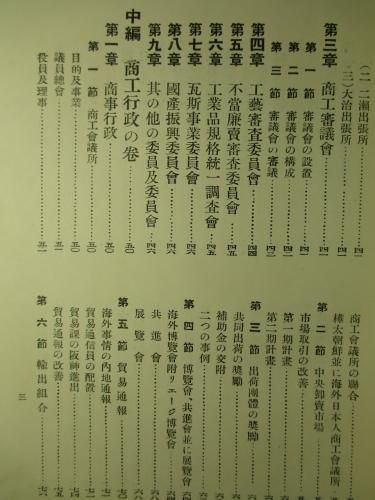 (二)二瀬出張所……(四一)
(三)大治出張所……(四一)
第三章 商工審議會……四一
第一節 審議會の設置……四一
第二節 審議會の構成……四一
第三節 審議會の審議……四二
第四章 工藝審査委員會……四四
第五章 不當廉賣審査委員會……四五
第六章 工業品規格統一調査會……四五
第七章 瓦斯事業委員會……四六
第八章 國產振興委員會……四六
第九章 其の他の委員及委員會……四六
中編 商工行政の卷……五〇
第一章 商事行政……五〇
第一節 商工會議所……五〇
目的及事業……五〇
議員總會……五一
役員及理事……五一
商工會議所の聯合
樺太朝鮮並に海外日本人商工會議所
第二節 中央卸賣市場
市場取引の改善
第一期計畫
第二期計畫
第三節 出荷團體の奬勵
共同出荷の奬勵
補助金の交附
二つの事例
第四節 博覽會、共進會並に展覽會
海外博覽會附リエージ博覽會
共進會
展覽會
第五節 貿易通報
海外事情の內地通報
貿易通信員の配置
貿易課の阪神進出
貿易通報の改善
第六節 輸出組合
三